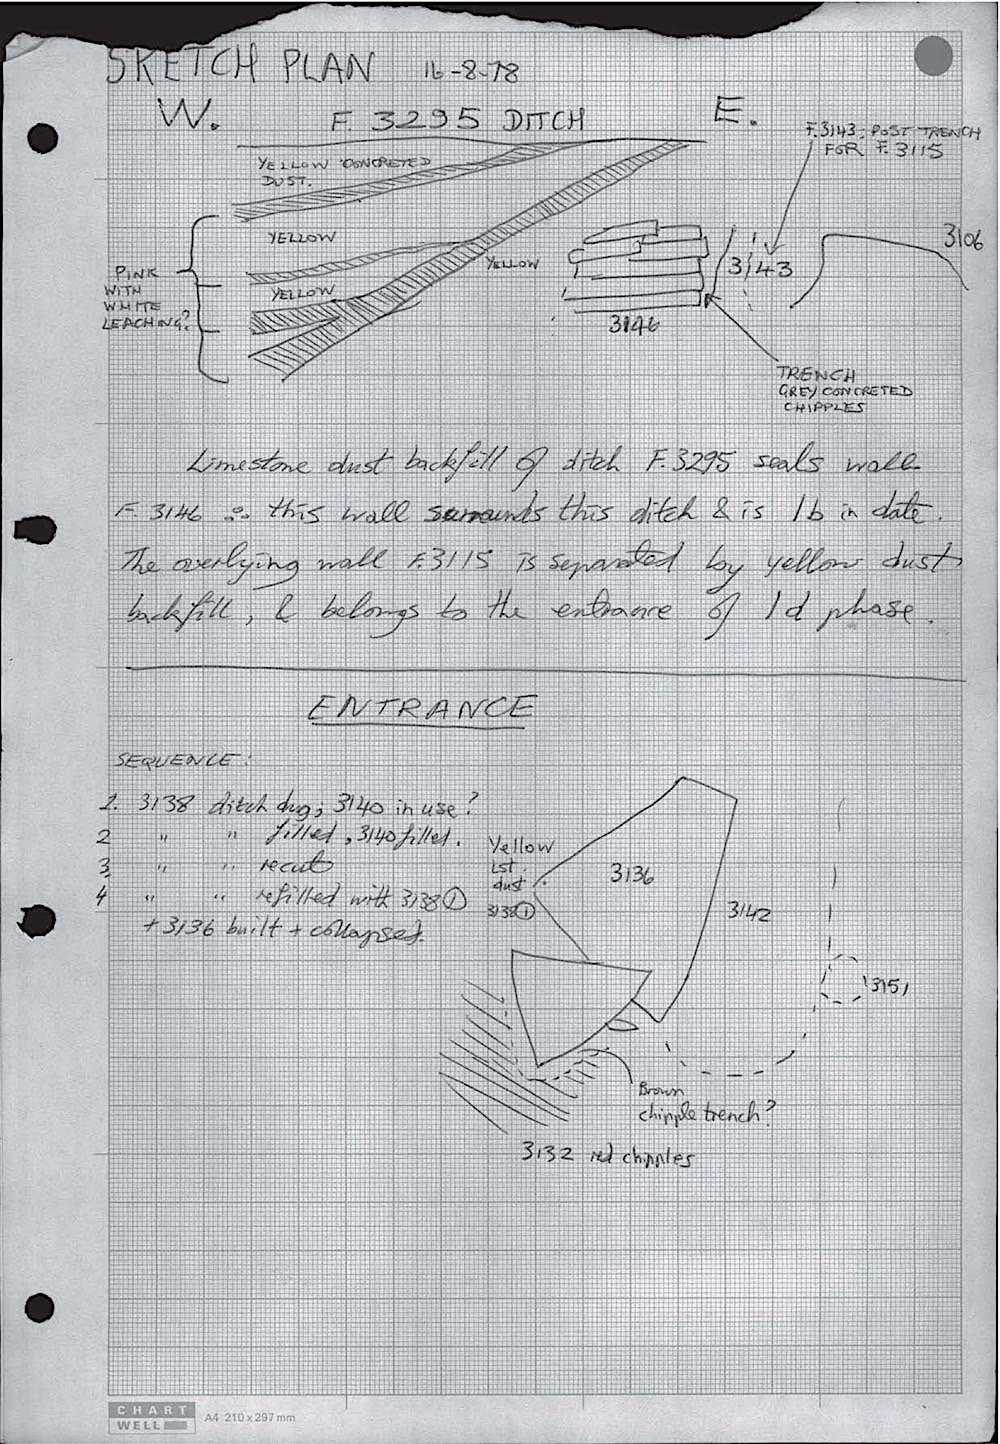 SKETCH PLAN 16-8-78
W. F. 3295 DITCH E.
F.3143: POST TRENCH
FOR F. 3115
YELLOW CONCRETED
DUST.
YELLOW
YELLOW
YELLOW
PINK
WITH
WHITE
LEACHING?
3143
3106
3146
TRENCH
GREY CONCRETED
CHIPPLES
Limestone dust backfill of ditch F.3295 seals wall
F. 3146 ∴ this wall surrounds this ditch & is 1b in date.
The overlying wall F.3115 is separated by yellow dust
backfill, & belongs to the entrance of 1d phase.
ENTRANCE
SEQUENCE:
1. 3138 ditch dug; 3140 in use?
2 " " filled, 3140 filled.
3 " " recut
4 " " refilled with 3138①
+ 3136 built + collapsed.
Yellow
Lst.
dust
3138①
3136
3142
3151
Brown
chipple trench?
3132 red chipples
CHART
WELL
A4 210 x 297 mm